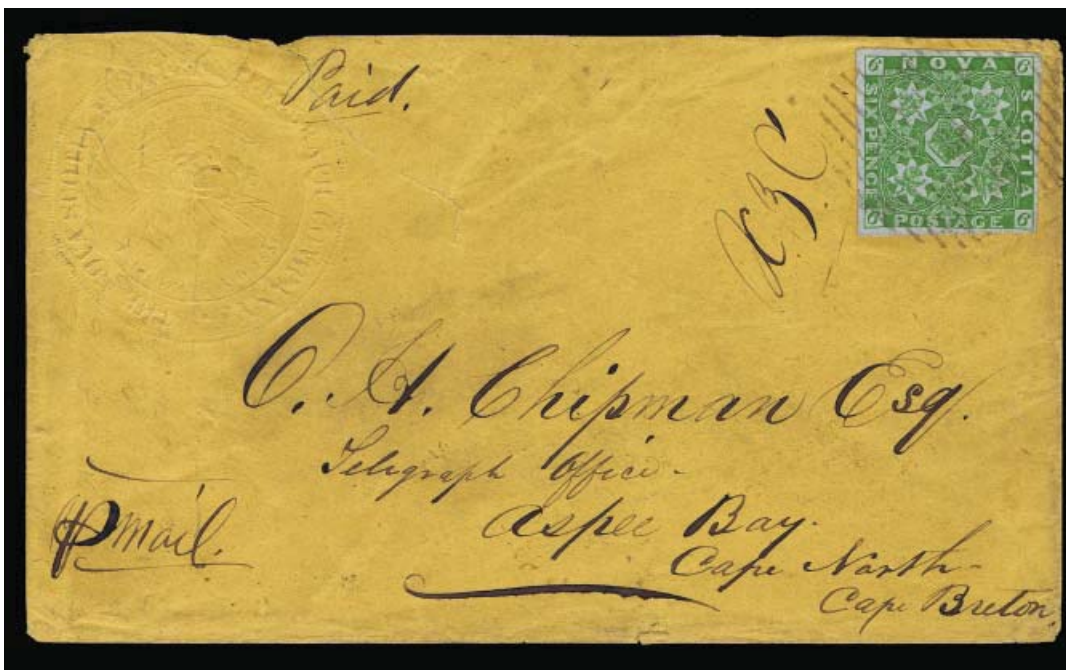 Paid.
6 NOVA 6
SIX PENCE
SCOTIA
6 POSTAGE 6
NOVA SCOTIA
C. H. Chipman Esq.
Telegraph Office -
Aspee Bay.
Cape North -
Cape Breton.
mail.